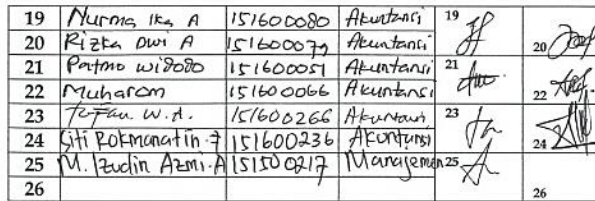 19 Nurma Ika A 151600080 Akuntansi 19
20 Rizka Dwi A 151600079 Akuntansi 20
21 Patmo Widodo 151600051 Akuntansi 21
22 Muharom 151600066 Akuntansi 22
23 W.A. 151600266 Akuntansi 23
24 Siti Rokmanatin.F 151600236 Akuntansi 24
25 M. Izudin Azmi.A 151500217 Managemen 25
26 26